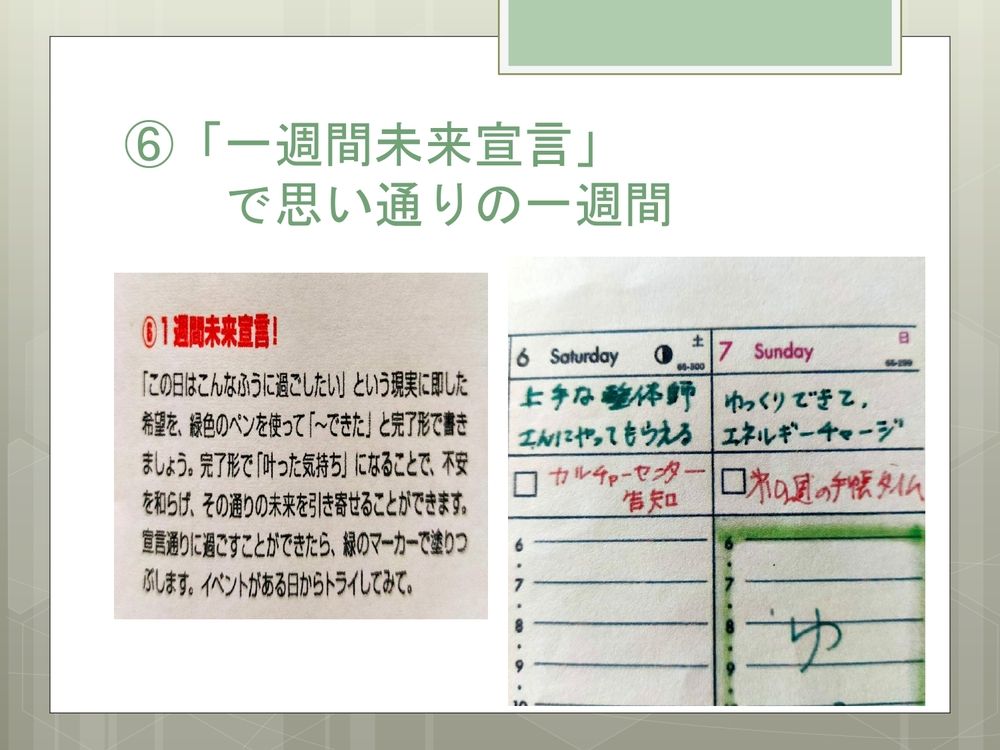 ⑥「一週間未来宣言」
で思い通りの一週間
⑥1週間未来宣言!
「この日はこんなふうに過ごしたい」という現実に即した
希望を、緑色のペンを使って「〜できた」と完了形で書き
ましょう。完了形で「叶った気持ち」になることで、不安
を和らげ、その通りの未来を引き寄せることができます。
宣言通りに過ごすことができたら、緑のマーカーで塗りつ
ぶします。イベントがある日からトライしてみて。
6 Saturday 土
65-300
上手な整体師
さんにやってもらえる
カルチャーセンター
告知
6
7
8
9
10
7 Sunday 日
66-299
ゆっくりできて、
エネルギーチャージ
次の週の手帳タイム
6
7
8
9
ゆ